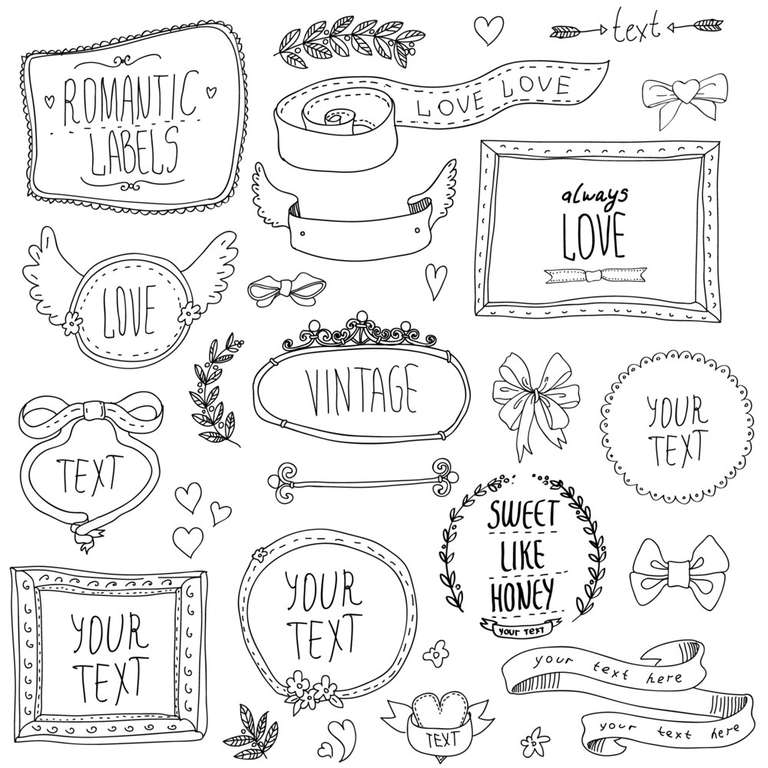 text
ROMANTIC
LABELS
LOVE LOVE
always
LOVE
LOVE
VINTAGE
YOUR
TEXT
TEXT
SWEET
LIKE
HONEY
your text
YOUR
TEXT
YOUR
TEXT
your text here
your text here
TEXT